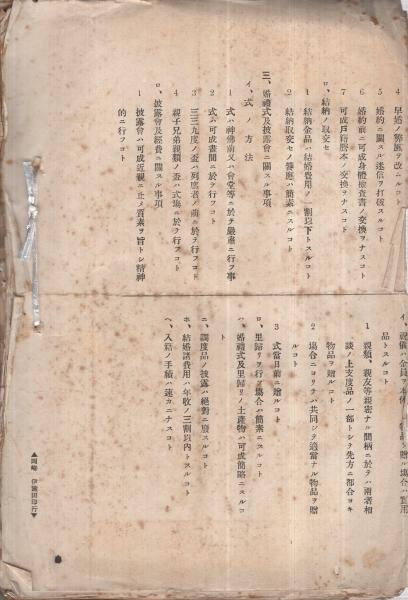 4 早婚ノ弊風ヲ改ムルコト
5 婚約ニ關スル迷信ヲ打破スルコト
6 婚約前ニ可成身體檢査書ノ交換ヲナスコト
7 可成戸籍謄本ノ交換ヲナスコト
ロ、結納ノ取交セ
1 結納金品ハ結婚費用ノ一割以下トスルコト
2 結納取交セノ饗應ハ簡素ニスルコト
三、婚禮式及披露會ニ關スル事項
イ、式ノ方法
1 式ハ神佛前又ハ會堂等ニ於テ嚴肅ニ行フ事
2 式ハ可成晝間ニ於テ行フコト
3 三三九度ノ盃ハ列席者ノ前ニ於テ行フコト
4 親子兄弟親類ノ盃ハ式場ニ於テ行フコト
ロ、披露會及經費ニ關スル事項
1 披露會ハ可成近親ニ止メ質素ヲ旨トシ精神
的ニ行フコト
品トスルコト
1 親類、親友等親密ナル間柄ニ於テハ兩者相
談ノ上支度品ノ一部トシテ先方ニ都合ヨキ
物品ヲ贈ルコト
2 場合ニヨリテハ共同シテ適當ナル物品ヲ贈
ルコト
3 式當日前ニ贈ルコト
ロ、里歸リヲ行フ場合ハ簡素ニスルコト
ハ、婚禮式及里歸リノ土產物ハ可成簡略ニスルコ
ト
ニ、調度品ノ披露ハ絕對ニ廢スルコト
ホ、結婚諸費用ハ年收ノ三割以内トスルコト
ヘ、入籍ノ手續ハ速カニナスコト